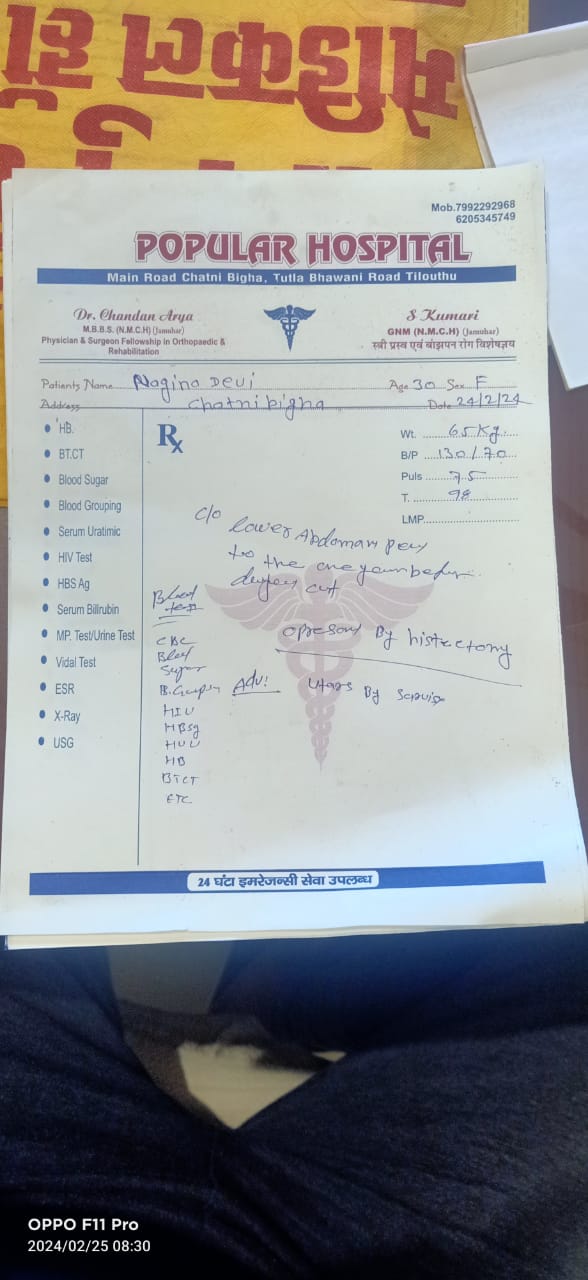 Mob.7992292968
6205345749
POPULAR HOSPITAL
Main Road Chatni Bigha, Tutla Bhawani Road Tilouthu
Dr. Chandan Arya
M.B.B.S. (N.M.C.H) (Jamuhar)
Physician & Surgeon Fellowship in Orthopaedic &
Rehabilitation
S Kumari
GNM (N.M.C.H) (Jamuhar)
स्त्री प्रस्व एवं बांझपन रोग विशेषज्ञय
Patients Name Nagina Devi Age 30 Sex F
Address Chatni bigha Date 24/2/24
HB.
BT.CT
Blood Sugar
Blood Grouping
Serum Uratimic
HIV Test
HBS Ag
Serum Billrubin
MP. Test/Urine Test
Vidal Test
ESR
X-Ray
USG
Rx
Wt. 65 Kg.
B/P 130/70
Puls 75
T. 98
LMP
c/o lower Abdoman
to the one year
Blood
test
CBC
Blood
Sugar
HIV
HBsg
HB
BTCT
ETC
By histectomy
Adv!
By
24 घंटा इमरेजन्सी सेवा उपलब्ध
OPPO F11 Pro
2024/02/25 08:30